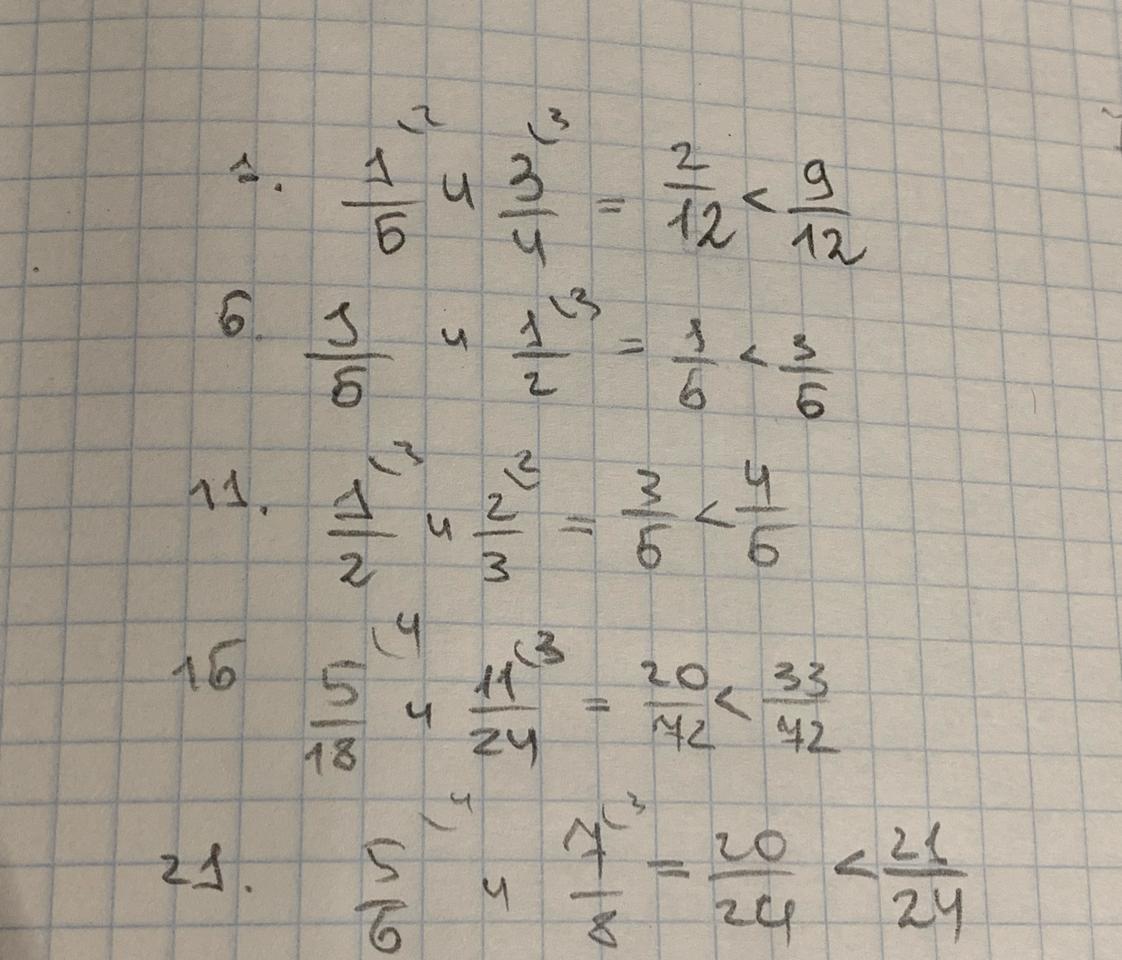 1. 1/6 (2 и 3/4 (3 = 2/12 < 9/12
6. 1/6 и 1/2 (3 = 1/6 < 3/6
11. 1/2 (3 и 2/3 (2 = 3/6 < 4/6
16 5/18 (4 и 11/24 (3 = 20/72 < 33/72
21. 5/6 (4 и 7/8 (3 = 20/24 < 21/24